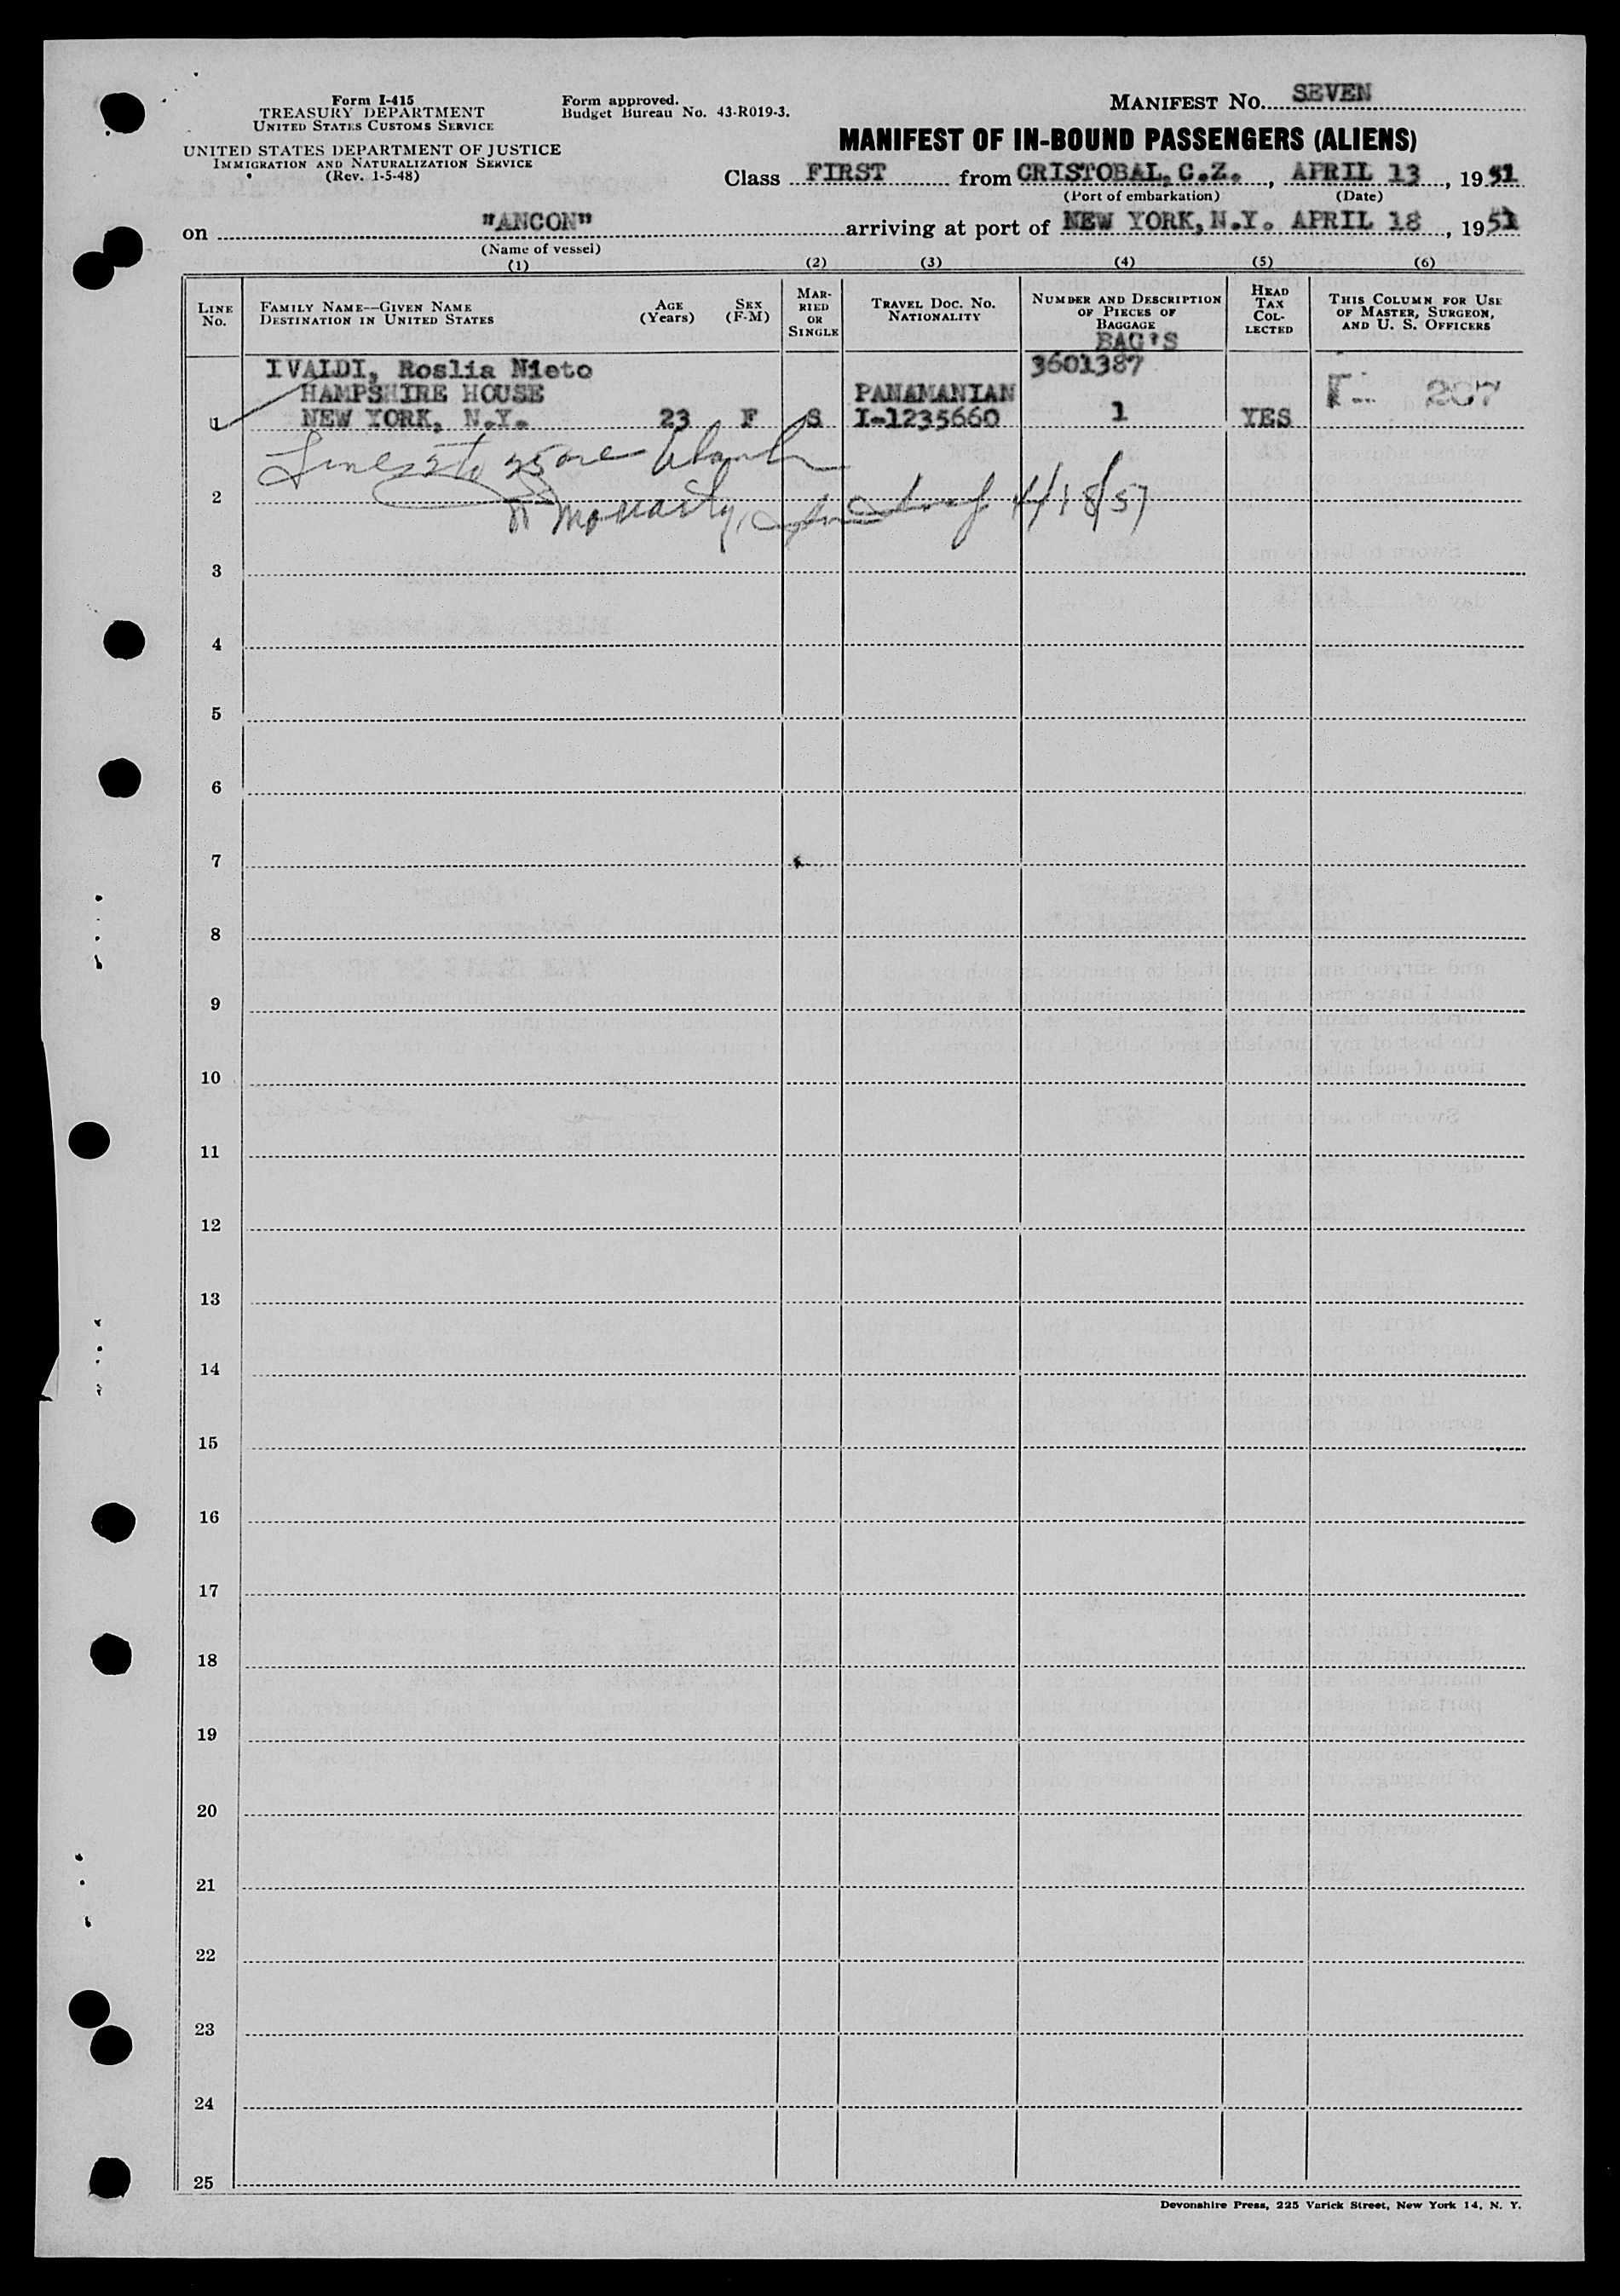 Form I-415
TREASURY DEPARTMENT
UNITED STATES CUSTOMS SERVICE
UNITED STATES DEPARTMENT OF JUSTICE
IMMIGRATION AND NATURALIZATION SERVICE
(Rev. 1-5-48)
Form approved.
Budget Bureau No. 43-R019-3.
MANIFEST No. SEVEN
MANIFEST OF IN-BOUND PASSENGERS (ALIENS)
Class FIRST from CRISTOBAL, C.Z., APRIL 13, 1951
(Port of embarkation) (Date)
on "ANCON" arriving at port of NEW YORK, N.Y. APRIL 18, 1951
(Name of vessel)
(1) (2) (3) (4) (5) (6)
LINE No.
FAMILY NAME—GIVEN NAME
DESTINATION IN UNITED STATES
AGE
(Years)
SEX
(F-M)
MARRIED OR SINGLE
TRAVEL DOC. NO.
NATIONALITY
NUMBER AND DESCRIPTION
OF PIECES OF
BAGGAGE
BAG'S
HEAD
TAX
COL-
LECTED
THIS COLUMN FOR USE
OF MASTER, SURGEON,
AND U. S. OFFICERS
IVALDI, Roslia Nieto 3601387
HAMPSHIRE HOUSE PANAMANIAN 207
1 NEW YORK, N.Y. 23 F S I-1235660 1 YES
Lines 2 to 25 are blank
2
Moriarty, 4/18/51
3
4
5
6
7
8
9
10
11
12
13
14
15
16
17
18
19
20
21
22
23
24
25
Devonshire Press, 225 Varick Street, New York 14, N. Y.